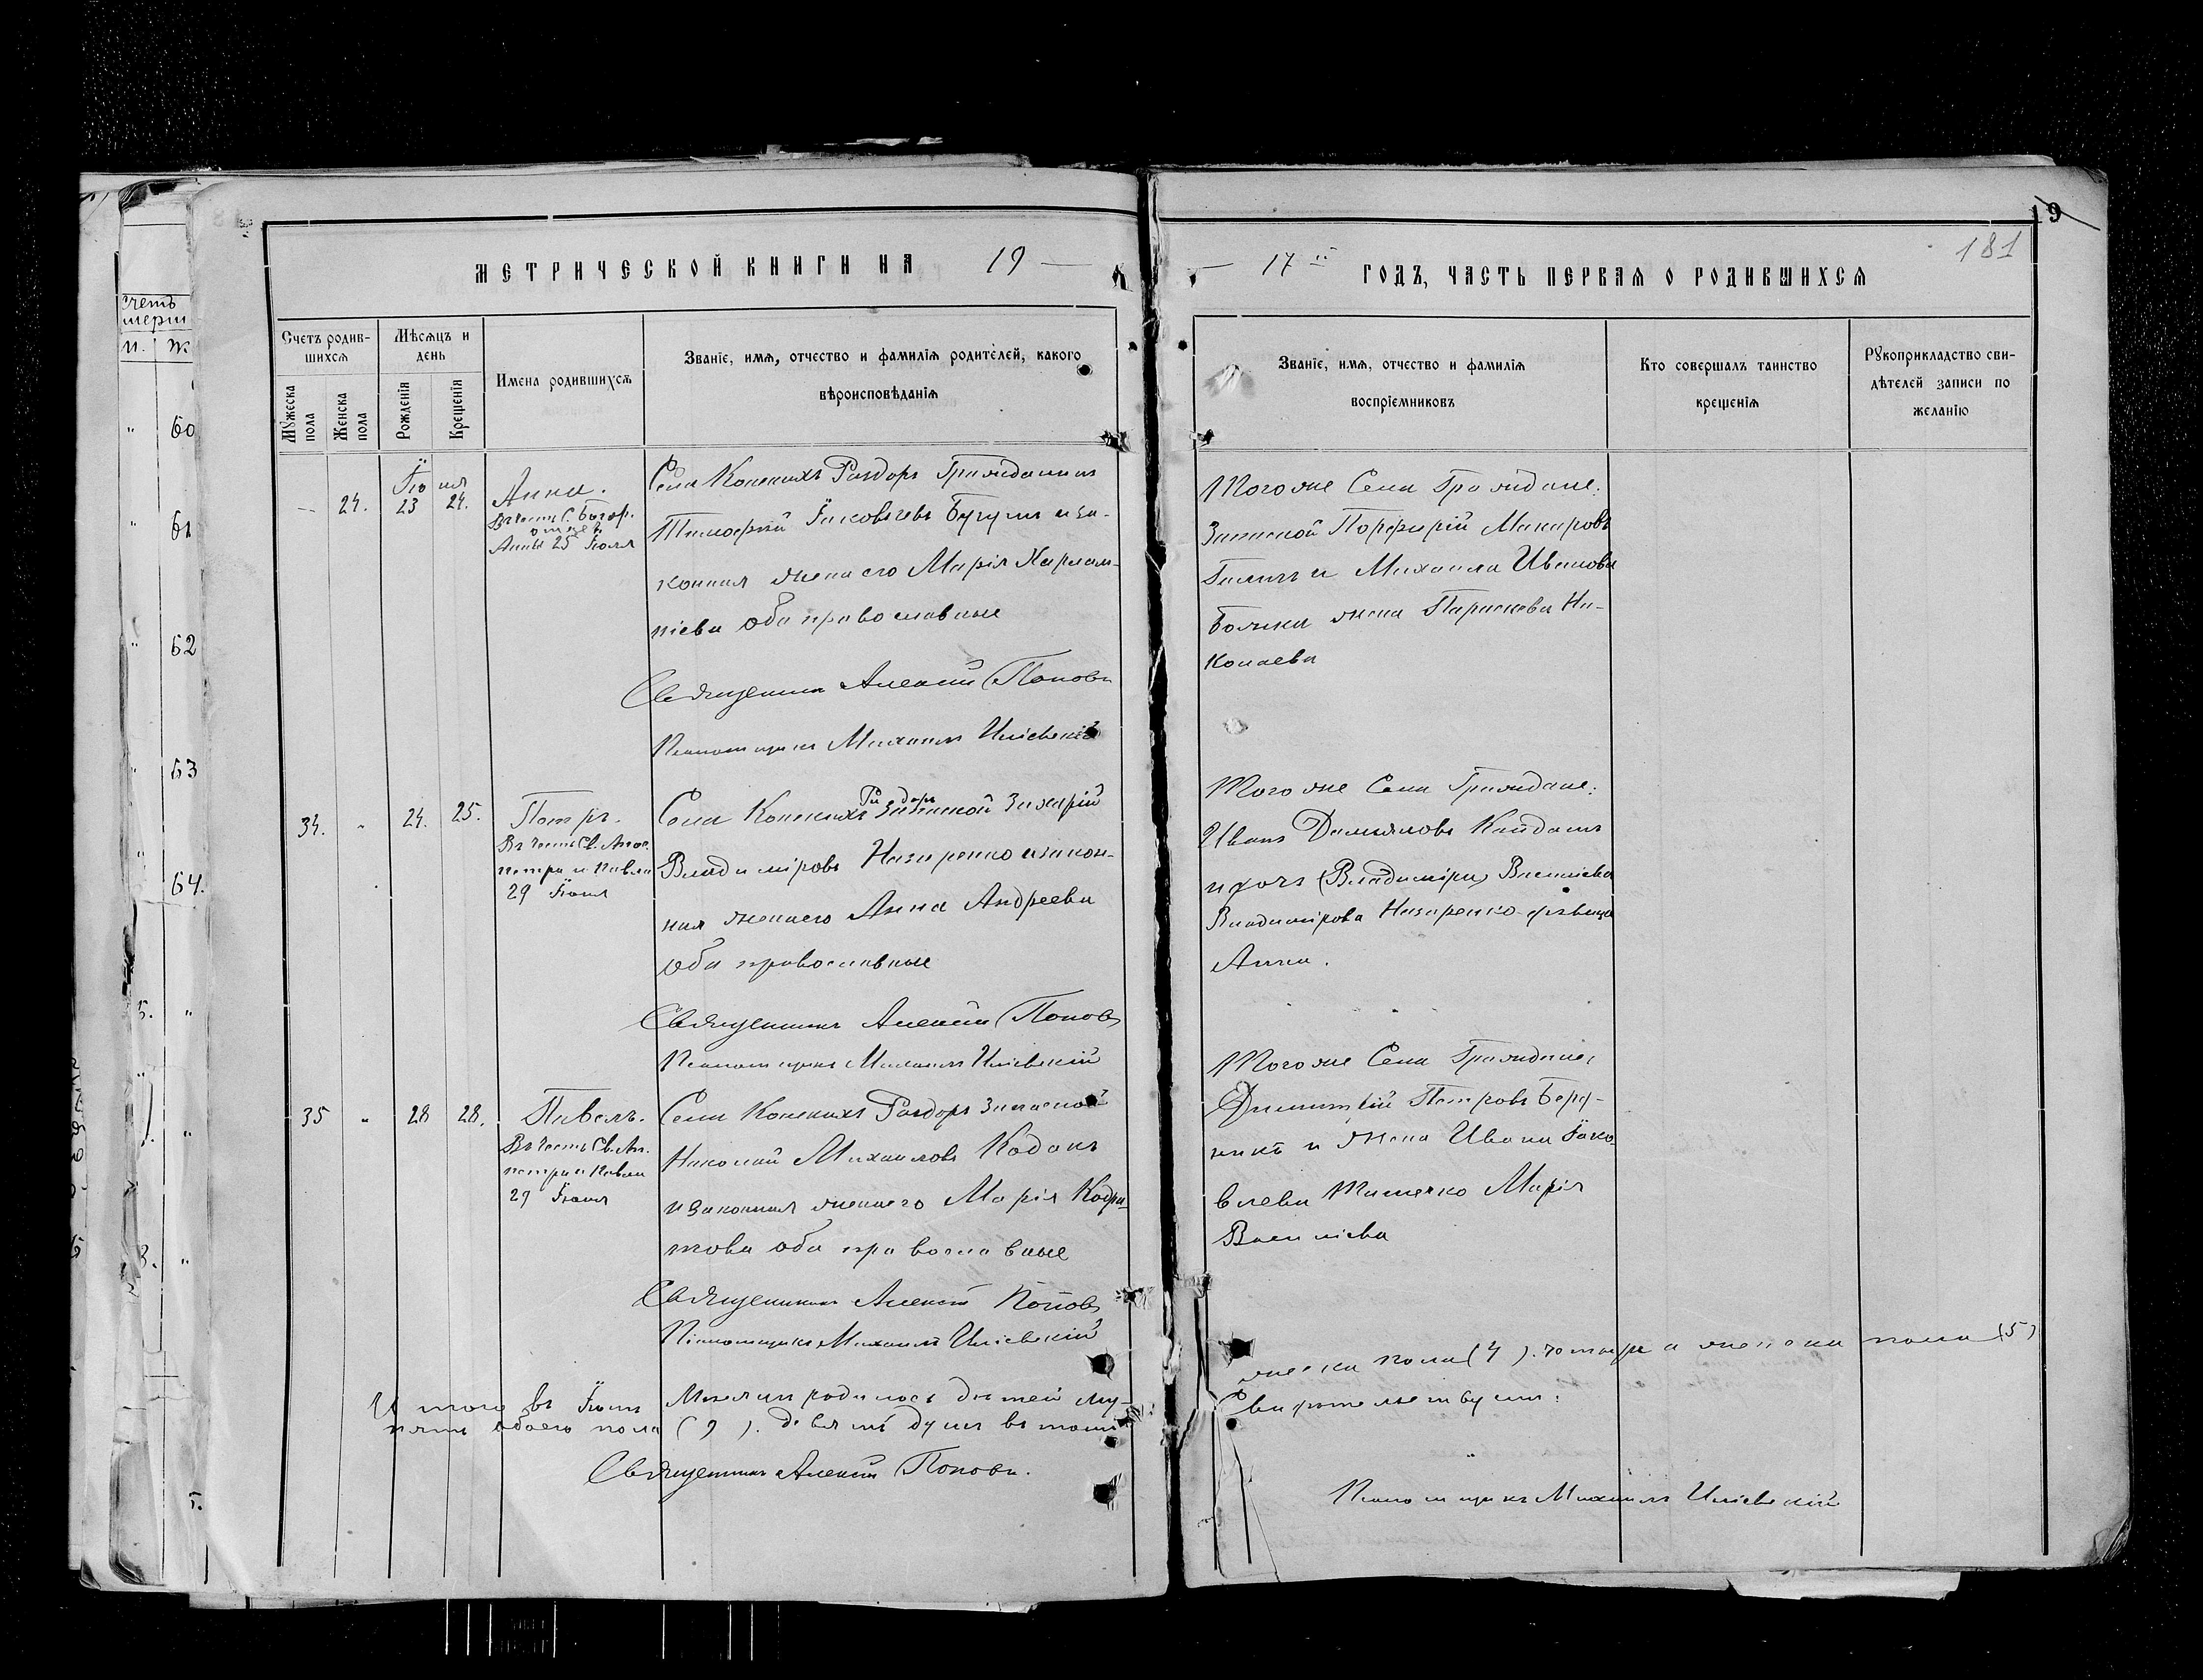 МЕТРИЧЕСКОЙ КНИГИ НА 19
17й ГОДЪ, ЧАСТЬ ПЕРВАЯ О РОДИВШИХСЯ
19
181
Счетъ родив-
шихся
Мѣсяцъ и
день
Мужеска
пола
Женска
пола
Рожденія
Крещенія
Имена родившихся
Званіе, имя, отчество и фамилія родителей, какого
вѣроисповѣданія
Званіе, имя, отчество и фамилія
воспріемниковъ
Кто совершалъ таинство
крещенія
Рукоприкладство сви-
дѣтелей записи по
желанію
Счетъ
мерш
м. ж
60
61
62
63
64.
Іюня
24. 23 24.
Анна.
Въ честь С. Богор.
отцев.
Анны 25 Іюля
Села Конскихъ Раздоръ Гражданинъ
Тимофей Іаковлевъ и за-
конная жена его Марія Харлам-
піева оба православные
Священникъ Алексій Поповъ
Псаломщикъ Михаилъ
Того же Села Граждане:
Запасной Порфирій Макаровъ
и Михаила Иванова
жена Параскева Ни-
колаева
34. " 24. 25.
Петръ.
Въ честь Св. Апос.
Петра и Павла
29 Іюня
Села Конскихъ Раздоръ Запасной Захарій
Владиміровъ Назаренко и закон-
ная жена его Анна Андреева
оба православные
Священникъ Алексій Поповъ
Псаломщикъ Михаилъ
Того же Села Граждане:
Иванъ Демьяновъ Кайдашъ
и дочь (Владиміра) Василіева
Владимірова Назаренко дѣвица
Анна.
35 " 28 28.
Павелъ.
Въ честь Св. Ап.
Петра и Павла
29 Іюня
Села Конскихъ Раздоръ Запасной
Николай Михаиловъ Кодакъ
и законная жена его Марія Кодра-
това оба православные
Священникъ Алексій Поповъ
Псаломщикъ Михаилъ
Того же Села Граждане,
Димитрій Петровъ Берд-
никъ и жена Ивана Іако-
влева Марія
Василіева
Итого въ Іюнѣ Мѣсяцѣ родилось дѣтей му-
жеска пола (4). четыре а женска пола (5)
пять обоего пола (9). девять душъ въ томъ
Свидѣтельствуемъ:
Священникъ Алексій Поповъ.
Псаломщикъ Михаилъ